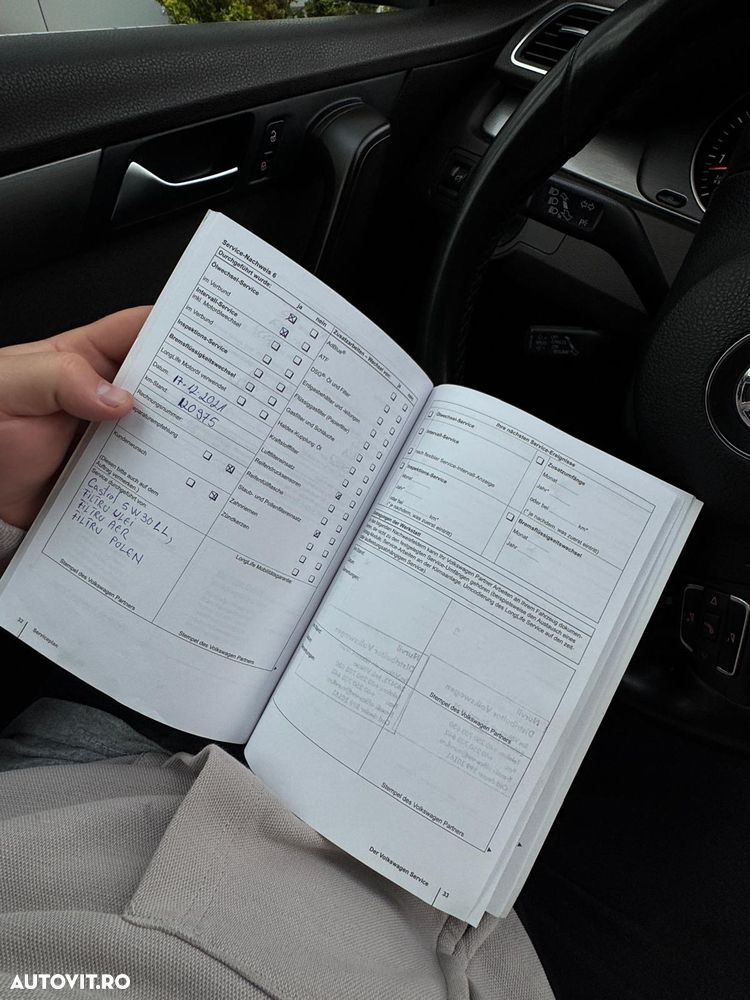 Service-Nachweis 6
Durchgeführt wurde:
ja nein
Ölwechsel-Service
im Verbund
Intervall-Service
inkl. Motorölwechsel
im Verbund
Inspektions-Service
Bremsflüssigkeitswechsel
LongLife Motoröl verwendet
Datum: 17.12.2021
km-Stand: 120975
Rechnungsnummer:
Reparaturempfehlung
Kundenwunsch
(Diesen bitte auch auf dem
Auftrag vermerken.)
Service durchgeführt von:
Castrol 5W30 LL,
FILTRU ULEI
FILTRU AER
FILTRU POLEN
Stempel des Volkswagen Partners
32 Serviceplan
Zusatzarbeiten - Wechsel von: ja nein
AdBlue®
ATF
DSG®: Öl und Filter
Erdgasbehälter und -leitungen
Flüssiggasfilter (Papierfilter)
Gasfilter und Schläuche
Haldex-Kupplung: Öl
Kraftstofffilter
Luftfiltereinsatz
Reifendrucksensoren
Reifenfüllflasche
Staub- und Pollenfiltereinsatz
Zahnriemen
Zündkerzen
LongLife Mobilitätsgarantie
Stempel des Volkswagen Partners
Ihre nächsten Service-Ereignisse
Ölwechsel-Service
Intervall-Service
nach flexibler Service-Intervall-Anzeige
Inspektions-Service
Monat
Jahr
oder bei km*
(* je nachdem, was zuerst eintritt)
Zusatzumfänge
Monat
Jahr
oder bei km*
(* je nachdem, was zuerst eintritt)
Bremsflüssigkeitswechsel
Monat
Jahr
Stempel des Volkswagen Partners
Stempel des Volkswagen Partners
Der Volkswagen Service 33
AUTOVIT.RO